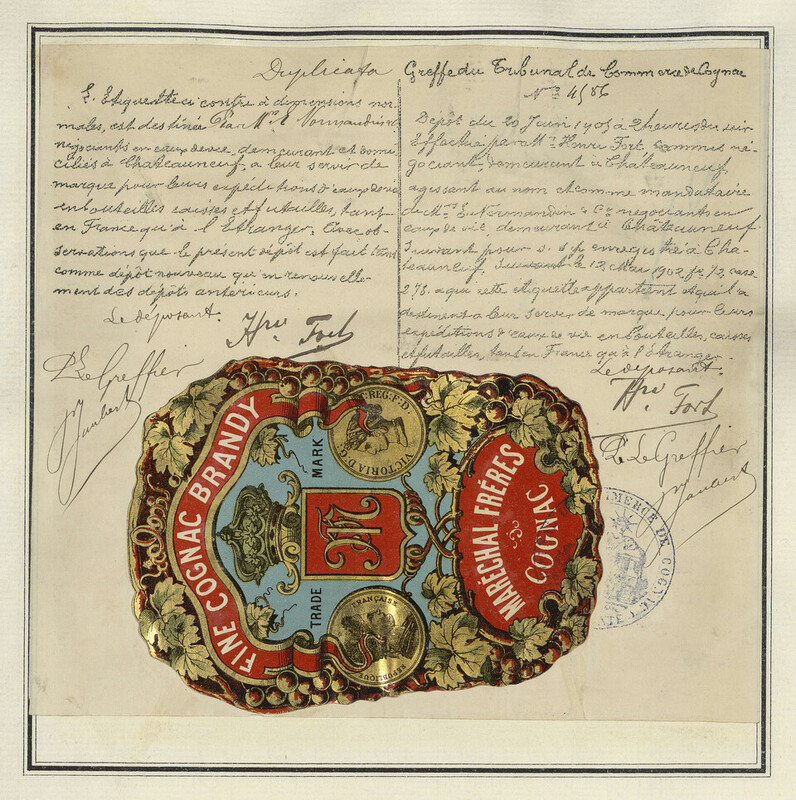 Duplicata
L'Etiquette ci contre à dimensions nor-
males, est destinée Par Mrs E. Normandin & Co
négociants en eaux de vie, demeurant et domi-
ciliés à Chateauneuf, a leur servir de
marque pour leurs expéditions d'eaux de vie
en bouteilles caisses et futailles, tant
en France qu'à l'Etranger. Avec ob-
servations que le présent dépôt est fait tant
comme dépôt nouveau qu'en renouvelle-
ment des dépôts antérieurs.
Le déposant.
Hri Fort
P. Le Greffier
Greffe du Tribunal de Commerce de Cognac
No 4586
Dépôt du 20 Juin 1905 à 2 heures du soir
Effectué par Mr Henri Fort, commis né-
gociant, demeurant à Chateauneuf,
agissant au nom et comme mandataire
de Mrs E. Normandin & Co négociants en
eaux de vie, demeurant à Châteauneuf.
Suivant pour s. s. p. enregistré à Cha-
teauneuf, le 12 Mai 1902 fo 72, case
273. a qui cette étiquette appartient et qui l'a
destinent a leur servir de marque, pour leurs
expéditions d'eaux de vie en bouteilles, caisses
et futailles, tant en France qu'à l'étranger.
Le déposant.
Hri Fort
P. Le Greffier
FINE COGNAC BRANDY
TRADE MARK
VICTORIA D:G: REG:F:D
REPUBLIQUE FRANÇAISE
MARÉCHAL FRÈRES
COGNAC
COMMERCE DE COGNAC